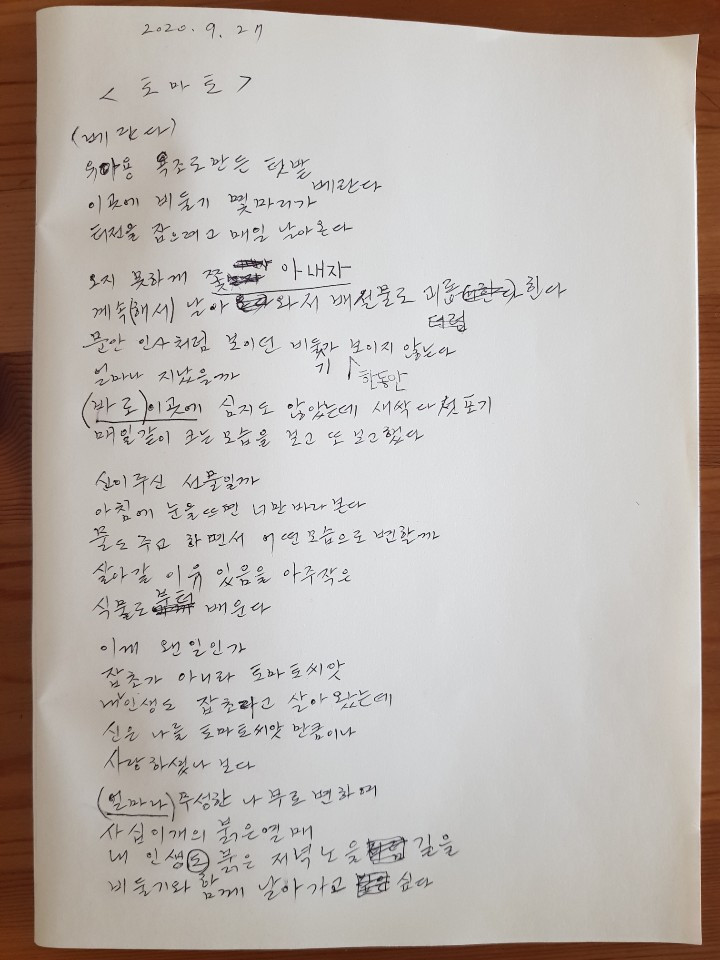 2020. 9. 27
< 토마토 >
(베란다)
유아용 욕조로 만든 텃밭
베란다
이곳에 비둘기 몇마리가
터전을 잡으려고 매일 날아온다
오지 못하게 쫓 아내자
계속(해서) 날아 와서 배설물로 괴롭 한다
더럽
문안 인사처럼 보이던 비둘가 보이지 않는다
기 한동안
얼마나 지났을까
(바로) 이곳에 심지도 않았는데 새싹 다섯포기
매일같이 크는 모습을 보고 또 보고했다
신이주신 선물일까
아침에 눈을뜨면 너만 바라본다
물도 주고 하면서 어떤모습으로 변할까
살아갈 이유 있음을 아주작은
식물로부터 배운다
이게 왠일인가
잡초가 아니라 토마토씨앗
내 인생도 잡초라고 살아왔는데
신은 나를 토마토씨앗 만큼이나
사랑하셨나 보다
(얼마나) 무성한 나무로 변하여
사십이개의 붉은열매
내 인생도 붉은 저녁노을 길을
비둘기와 함께 날아가고 싶다